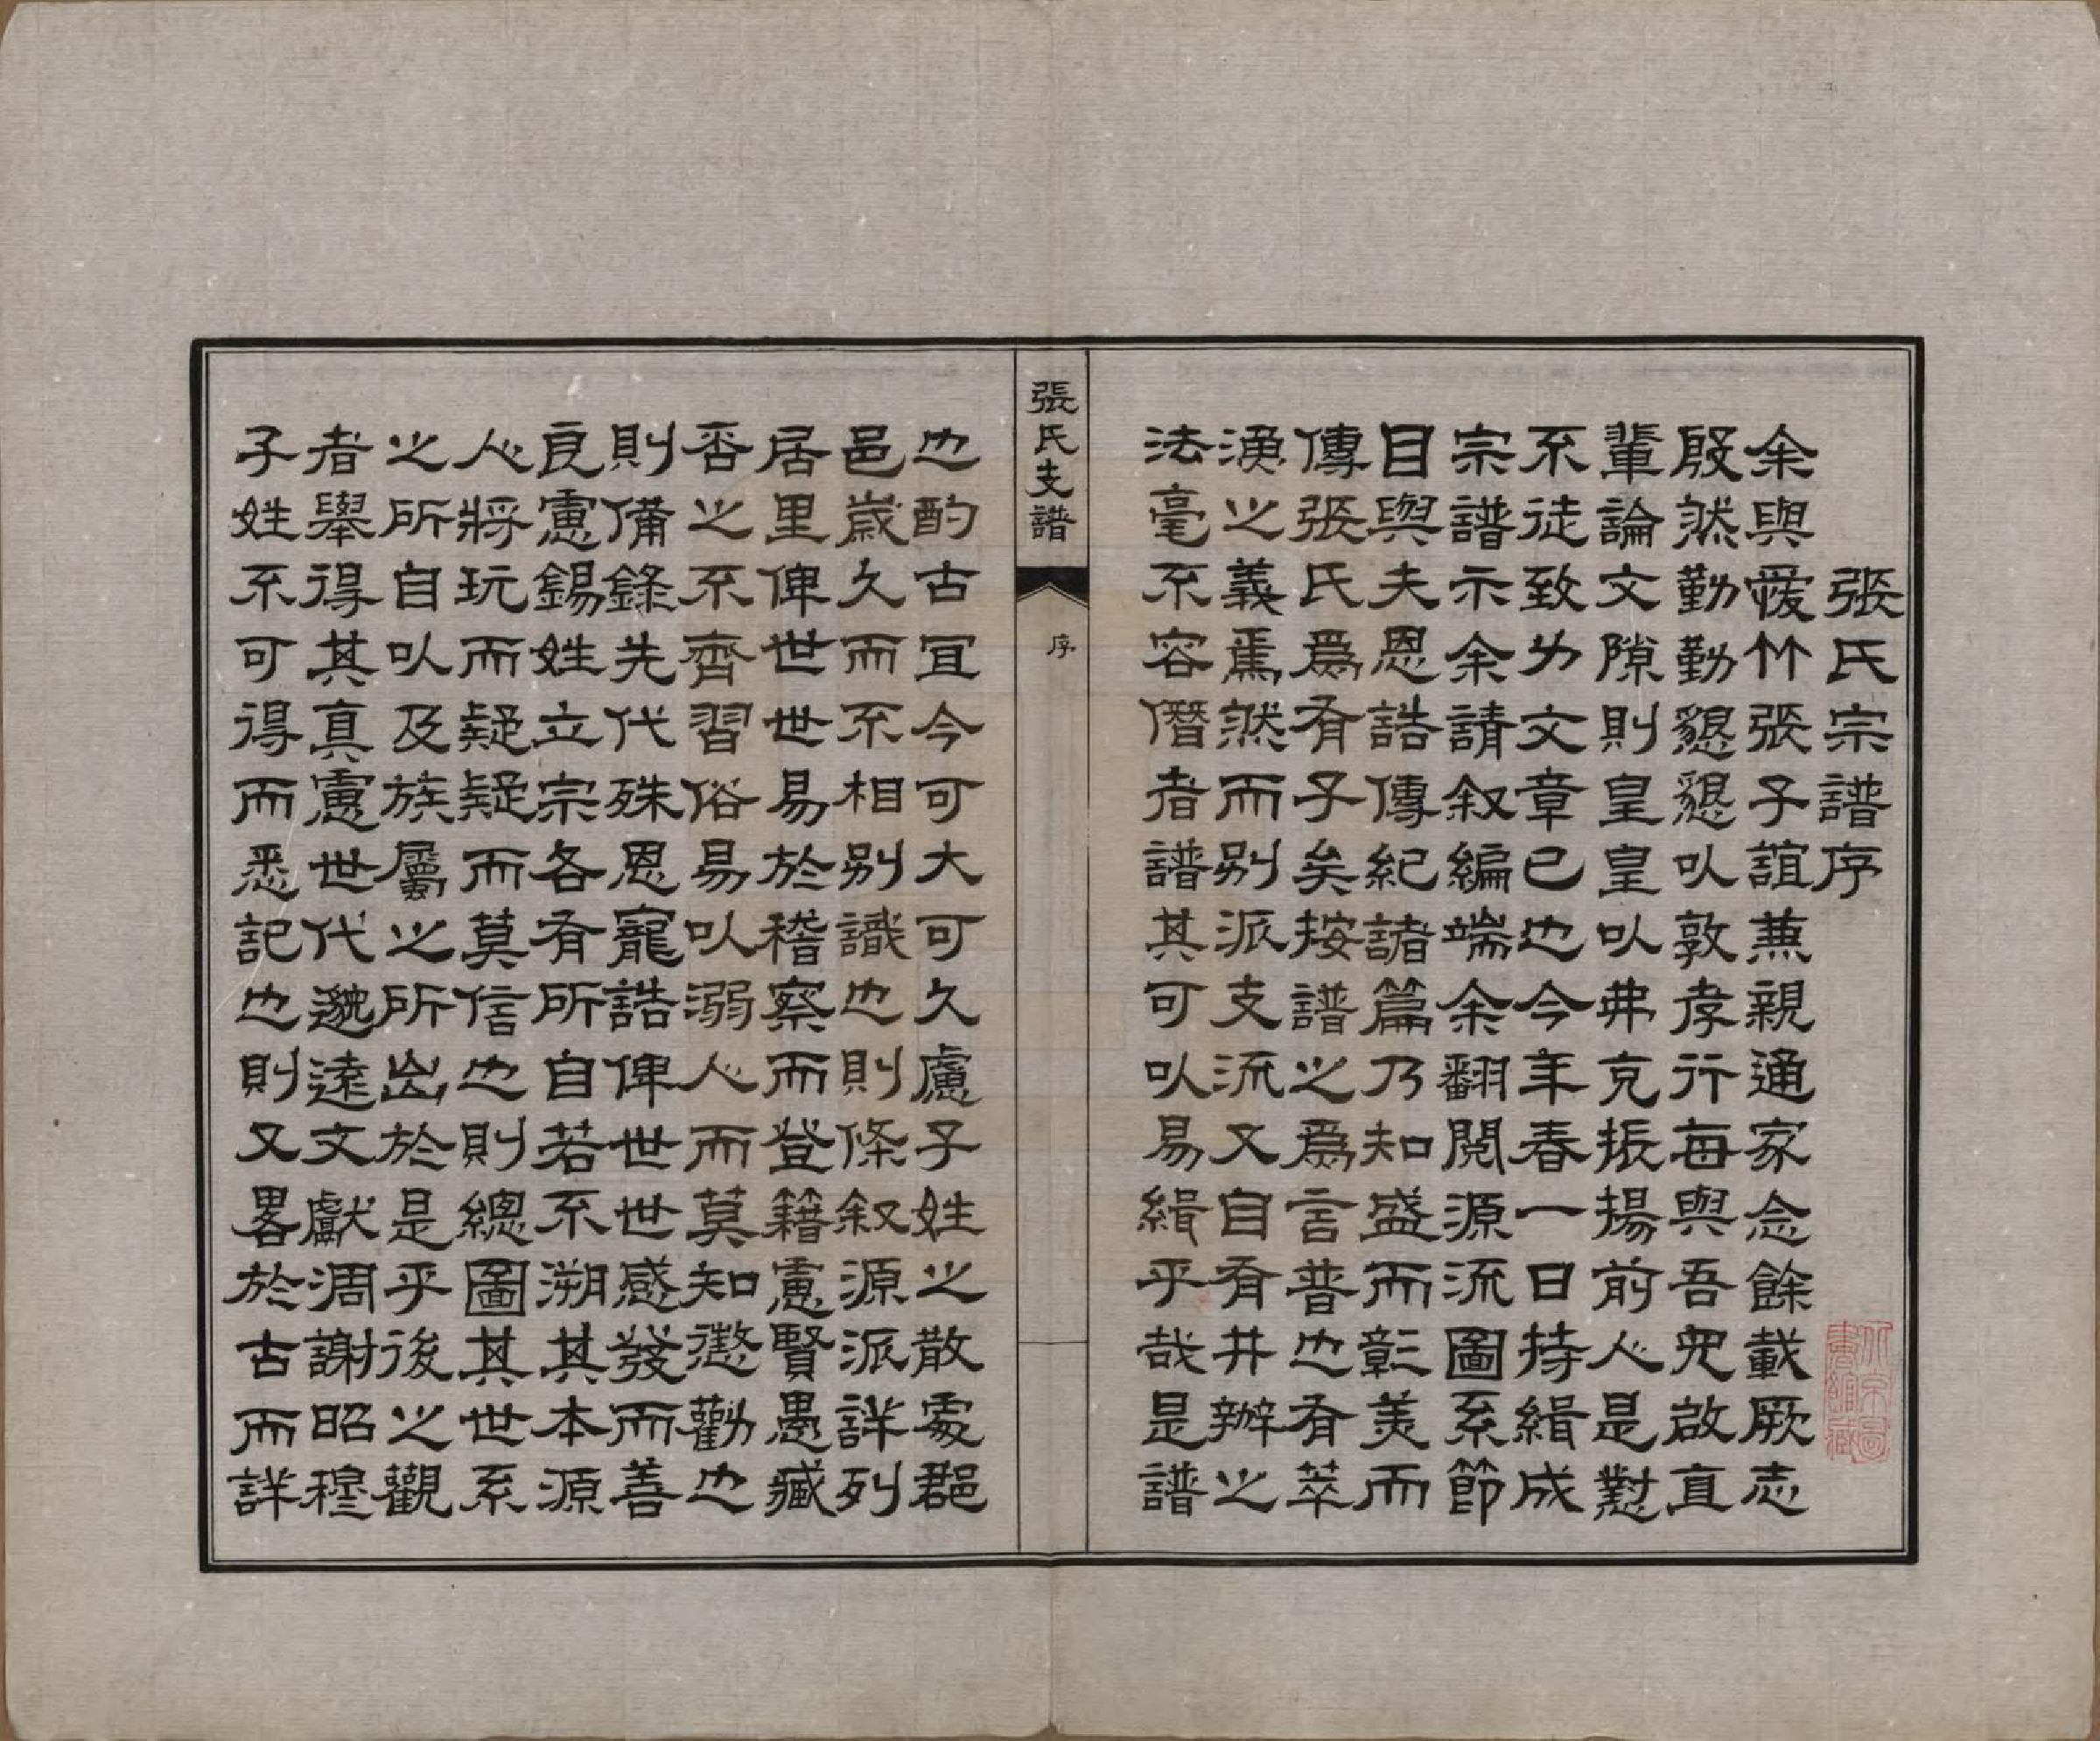 張氏宗譜序
余與愛竹張子誼兼親通家念餘載厥志
殷然勤勤懇懇以敦孝行每與吾兜啟直
輩論文隙則皇皇以弗克振揚前人是懟
不徒致力文章已也今年春一日持緝成
宗譜示余請叙編端余翻閱源流圖系節
目與夫恩誥傳紀諸篇乃知盛而彰美而
傳張氏爲有子矣按譜之爲言普也有萃
渙之義焉然而別派支流又自有井辦之
法毫不容僭者譜其可以易緝乎哉是譜
張氏支譜
序
也酌古宜今可大可久慮子姓之散處郡
邑歲久而不相別識也則條叙源派詳列
居里俾世世易於稽察而登籍慮賢愚臧
否之不齊習俗易以溺人而莫知懲勸也
則備錄先代殊恩寵誥俾世世感發而善
良慮錫姓立宗各有所自若不溯其本源
人將玩而疑疑而莫信也則總圖其世系
之所自以及族屬之所出於是乎後之觀
者舉得其真慮世代邈遠文獻凋謝昭穆
子姓不可得而悉記也則又畧於古而詳